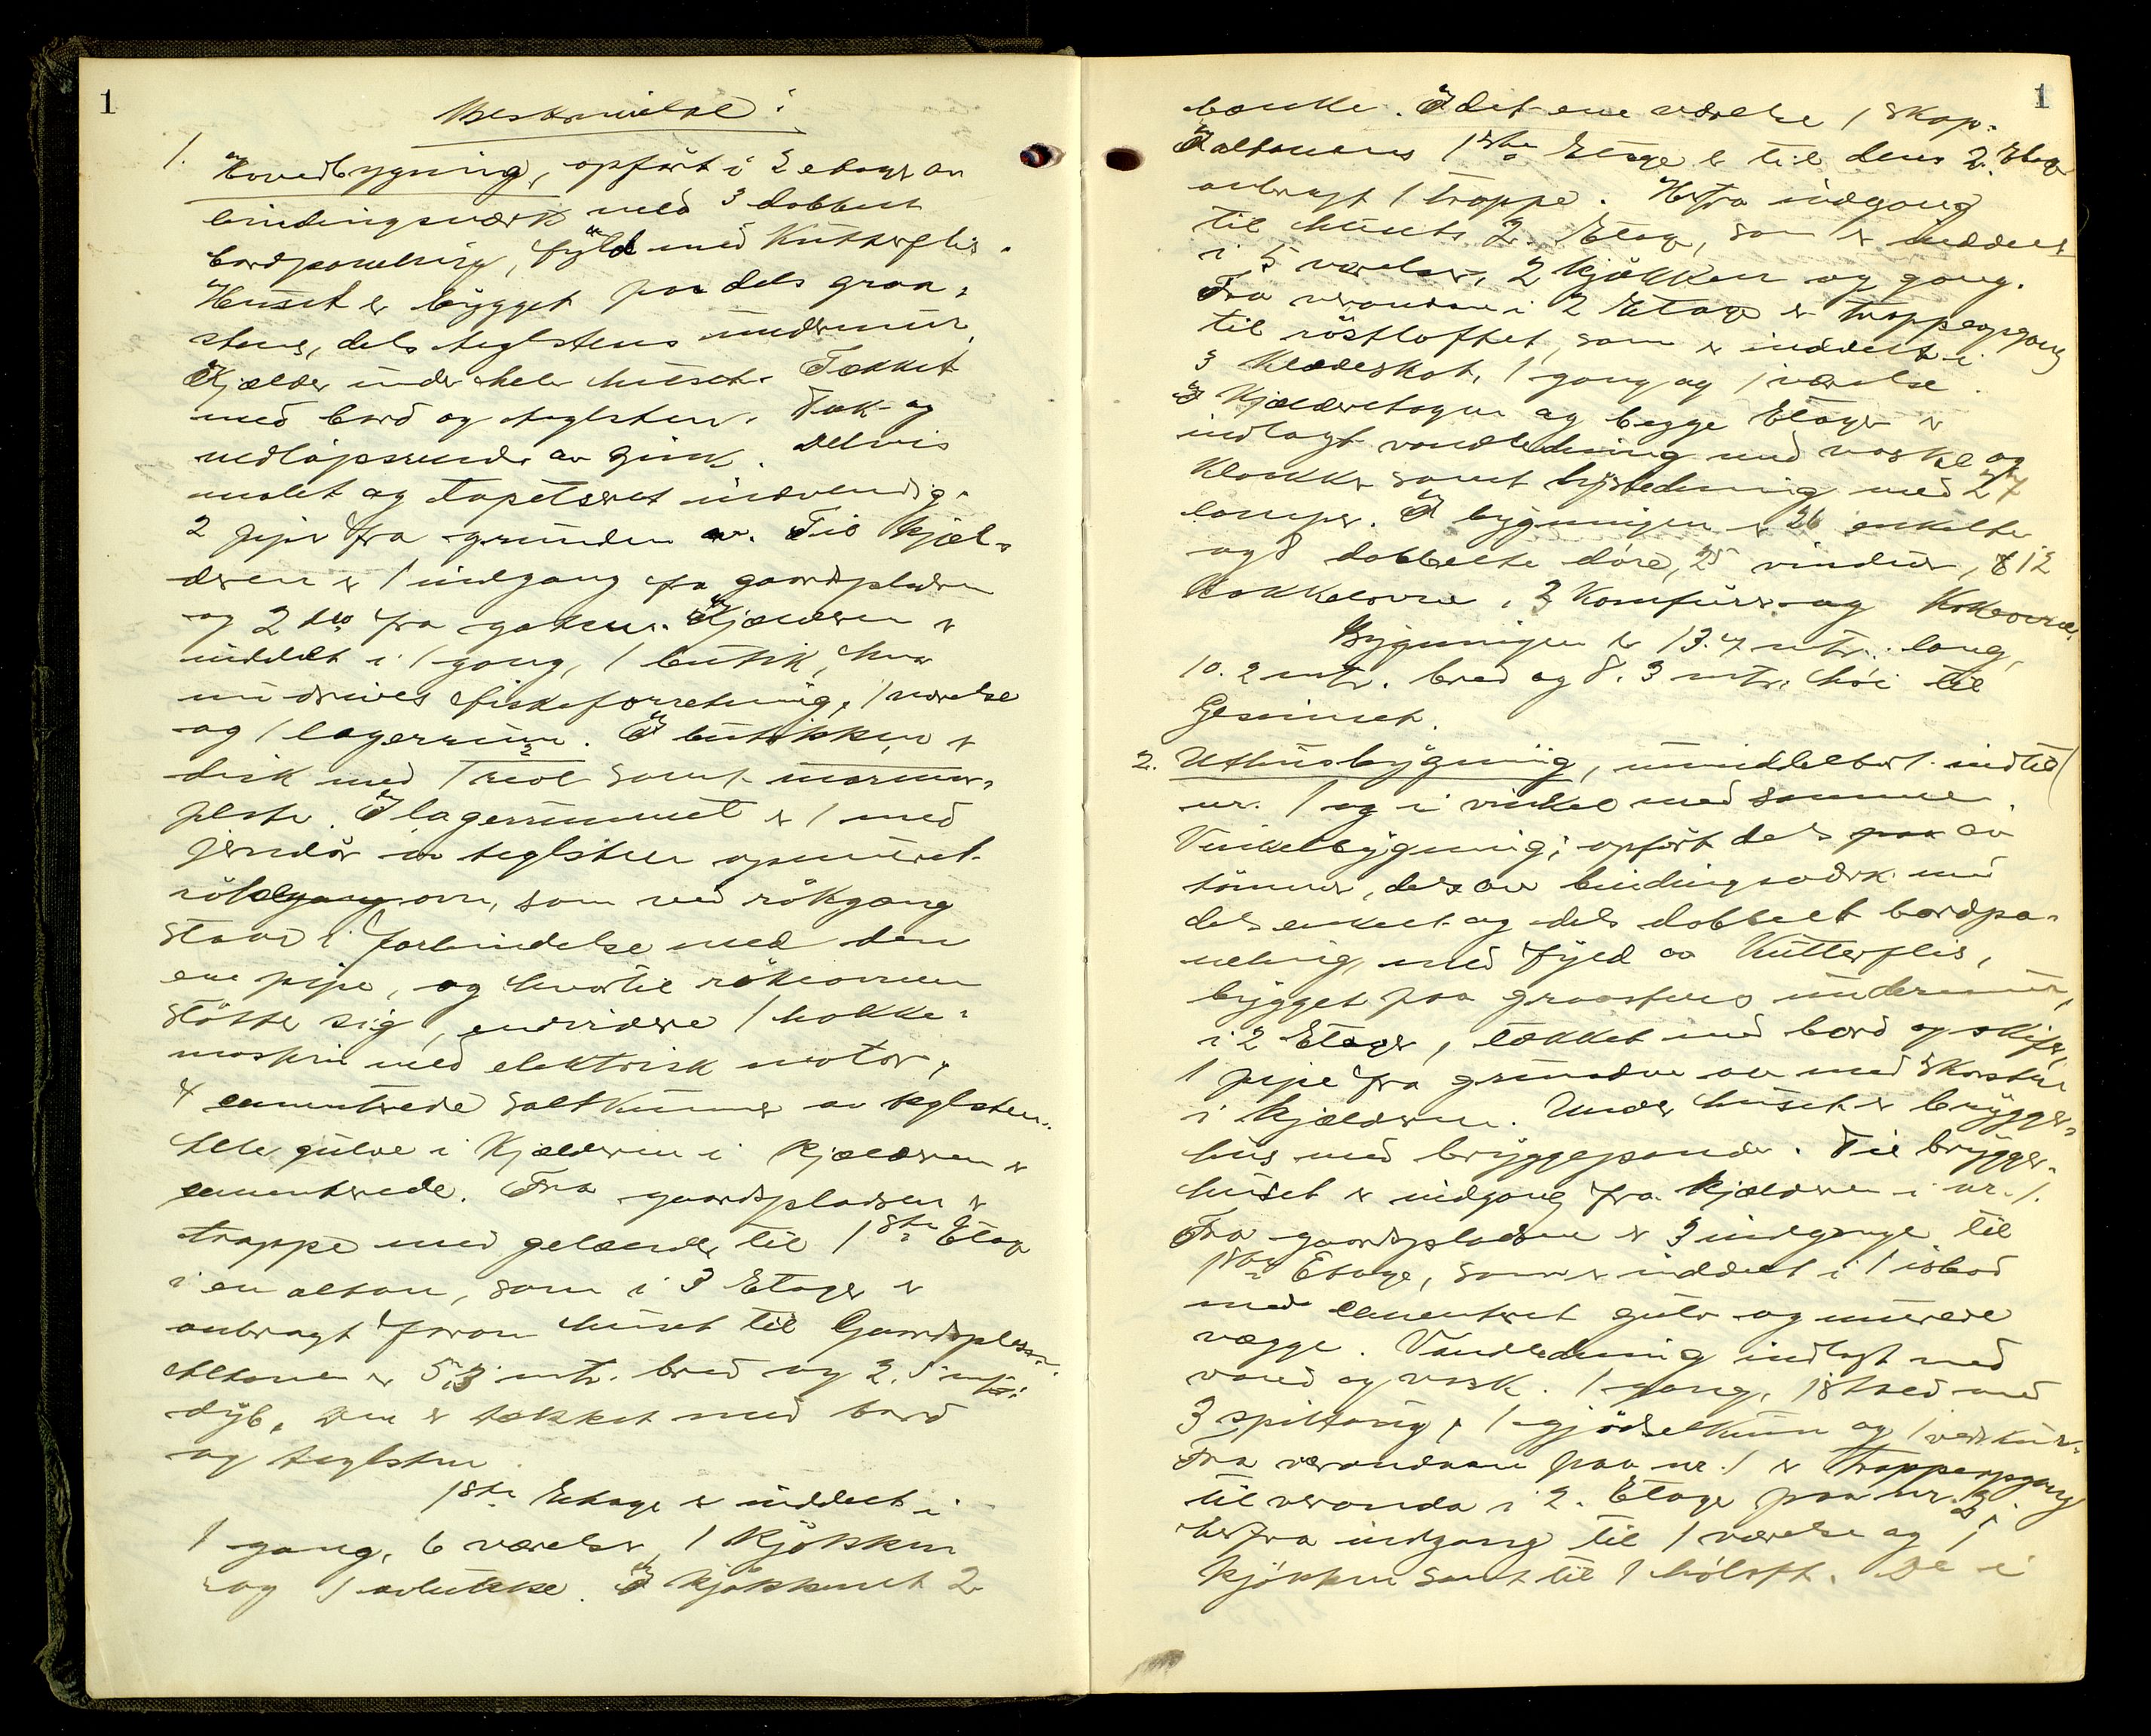 1
Beskrivelse:
1. Hovedbygning, opført i 2 etager av
bindingsværk med 3 dobbelt
bordpaneling, fyld med Kutterflis.
Huset er bygget paa dels graa-
stens, dels teglstens undermur.
Kjælder under hele huset. Tækket
med bord og teglsten. Tak- og
nedløpsrender av zink. Delvis
malet og tapetseret indvendig.
2 piper fra grunden av. Til kjæl-
deren er 1 indgang fra gaardspladsen
og 2 do fra gaten. Kjælderen er
inddelt i 1 gang, 1 butik, hvor
nu drives fiskeforretning, 1 værelse
og 1 lagerrum. I butikken er
disk med 1 reol samt marmor-
plate. I lagerrummet er 1 med
jerndør av teglsten opmuret
rökovn, som ved rökgang
staar i forbindelse med den
ene pipe, og hvortil rökeovnen
støtter sig, endvidere 1 hakke-
maskin med elektrisk motor,
4 cementerede saltkummer av teglsten.
Alle gulve i Kjælderen i Kjælderen er
cementerede. Fra gaardspladsen er
trappe med gelænder til 1ste Etage
i en altan, som i 3 Etager er
anbragt foran huset til Gaardsplassen.
Altanen er 5,3 mtr. bred og 2,5 mtr.
dyb. Den er tækket med bord
og teglsten.
1ste Etage er inddelt i
1 gang, 6 værelser, 1 Kjøkken
og 1 avlukke. I kjøkkenet 2
1
bænke. I det ene værelse 1 skap.
I altanens 1ste Etage er til dens 2. Etage
anbragt 1 trappe. Herfra indgang
til husets 2. Etage, som er inddelt
i 5 værelser, 2 kjøkken og gang.
Fra verandaen i 2 Etage er trappeopgang
til röstloftet, som er inddelt i
3 Klædeskot, 1 gang og 1 værelse.
I Kjælderetagen og begge Etager er
indlagt vandledning med vaske og
Kloakk samt lysledning med 27
lamper. I bygningen er 26 enkelte
og 8 dobbelte döre, 25 vinduer, 12
Kakkelovne, 3 Komfurer og Kokeovne.
Bygningen er 13.4 mtr. lang,
10.2 mtr. bred og 8.3 mtr. høi til
Gesimset.
2. Uthusbygning, umiddelbart indtil
nr. 1 og i vinkel med samme.
Vinkelbygning; opført dels av
tømmer, dels av bindingsværk med
dels enkelt og dels dobbelt bordpa-
neling med fyld av Kutterflis,
bygget paa graastens undermur,
i 2 Etager, tækket med bord og skifer,
1 pipe fra grunden av med skorsten
i Kjælderen. Under huset er brygger-
hus med bryggepande. Til brygger-
huset er indgang fra Kjælderen i nr. 1.
Fra gaardspladsen er 3 indgange til
1ste Etage, som er inddelt i 1 isbod
med cementeret gulv og murede
vægge. Vandledning indlagt med
vand og vask. 1 gang, 1 stald med
3 spiltaug, 1 gjødselkum og 1 vedskur.
Fra verandaen paa nr. 1 er trappeopgang
til veranda i 2. Etage paa nr. 2,
herfra indgang til 1 værelse og 1
Kjøkken samt til 1 høloft. De i